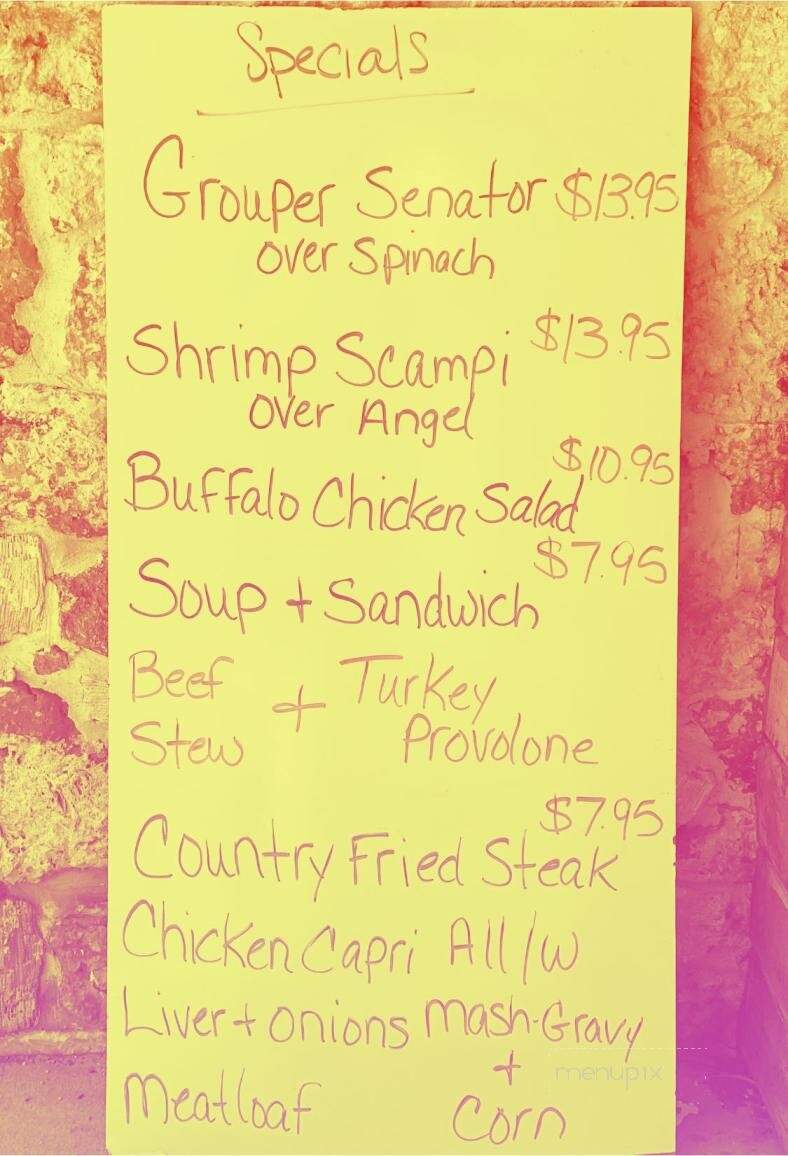 Specials
Grouper Senator $13.95
over Spinach
Shrimp Scampi $13.95
over Angel
Buffalo Chicken Salad $10.95
Soup + Sandwich $7.95
Beef Stew + Turkey Provolone
Country Fried Steak $7.95
Chicken Capri All/w
Liver + onions mash-Gravy
+
Meatloaf Corn
menupix